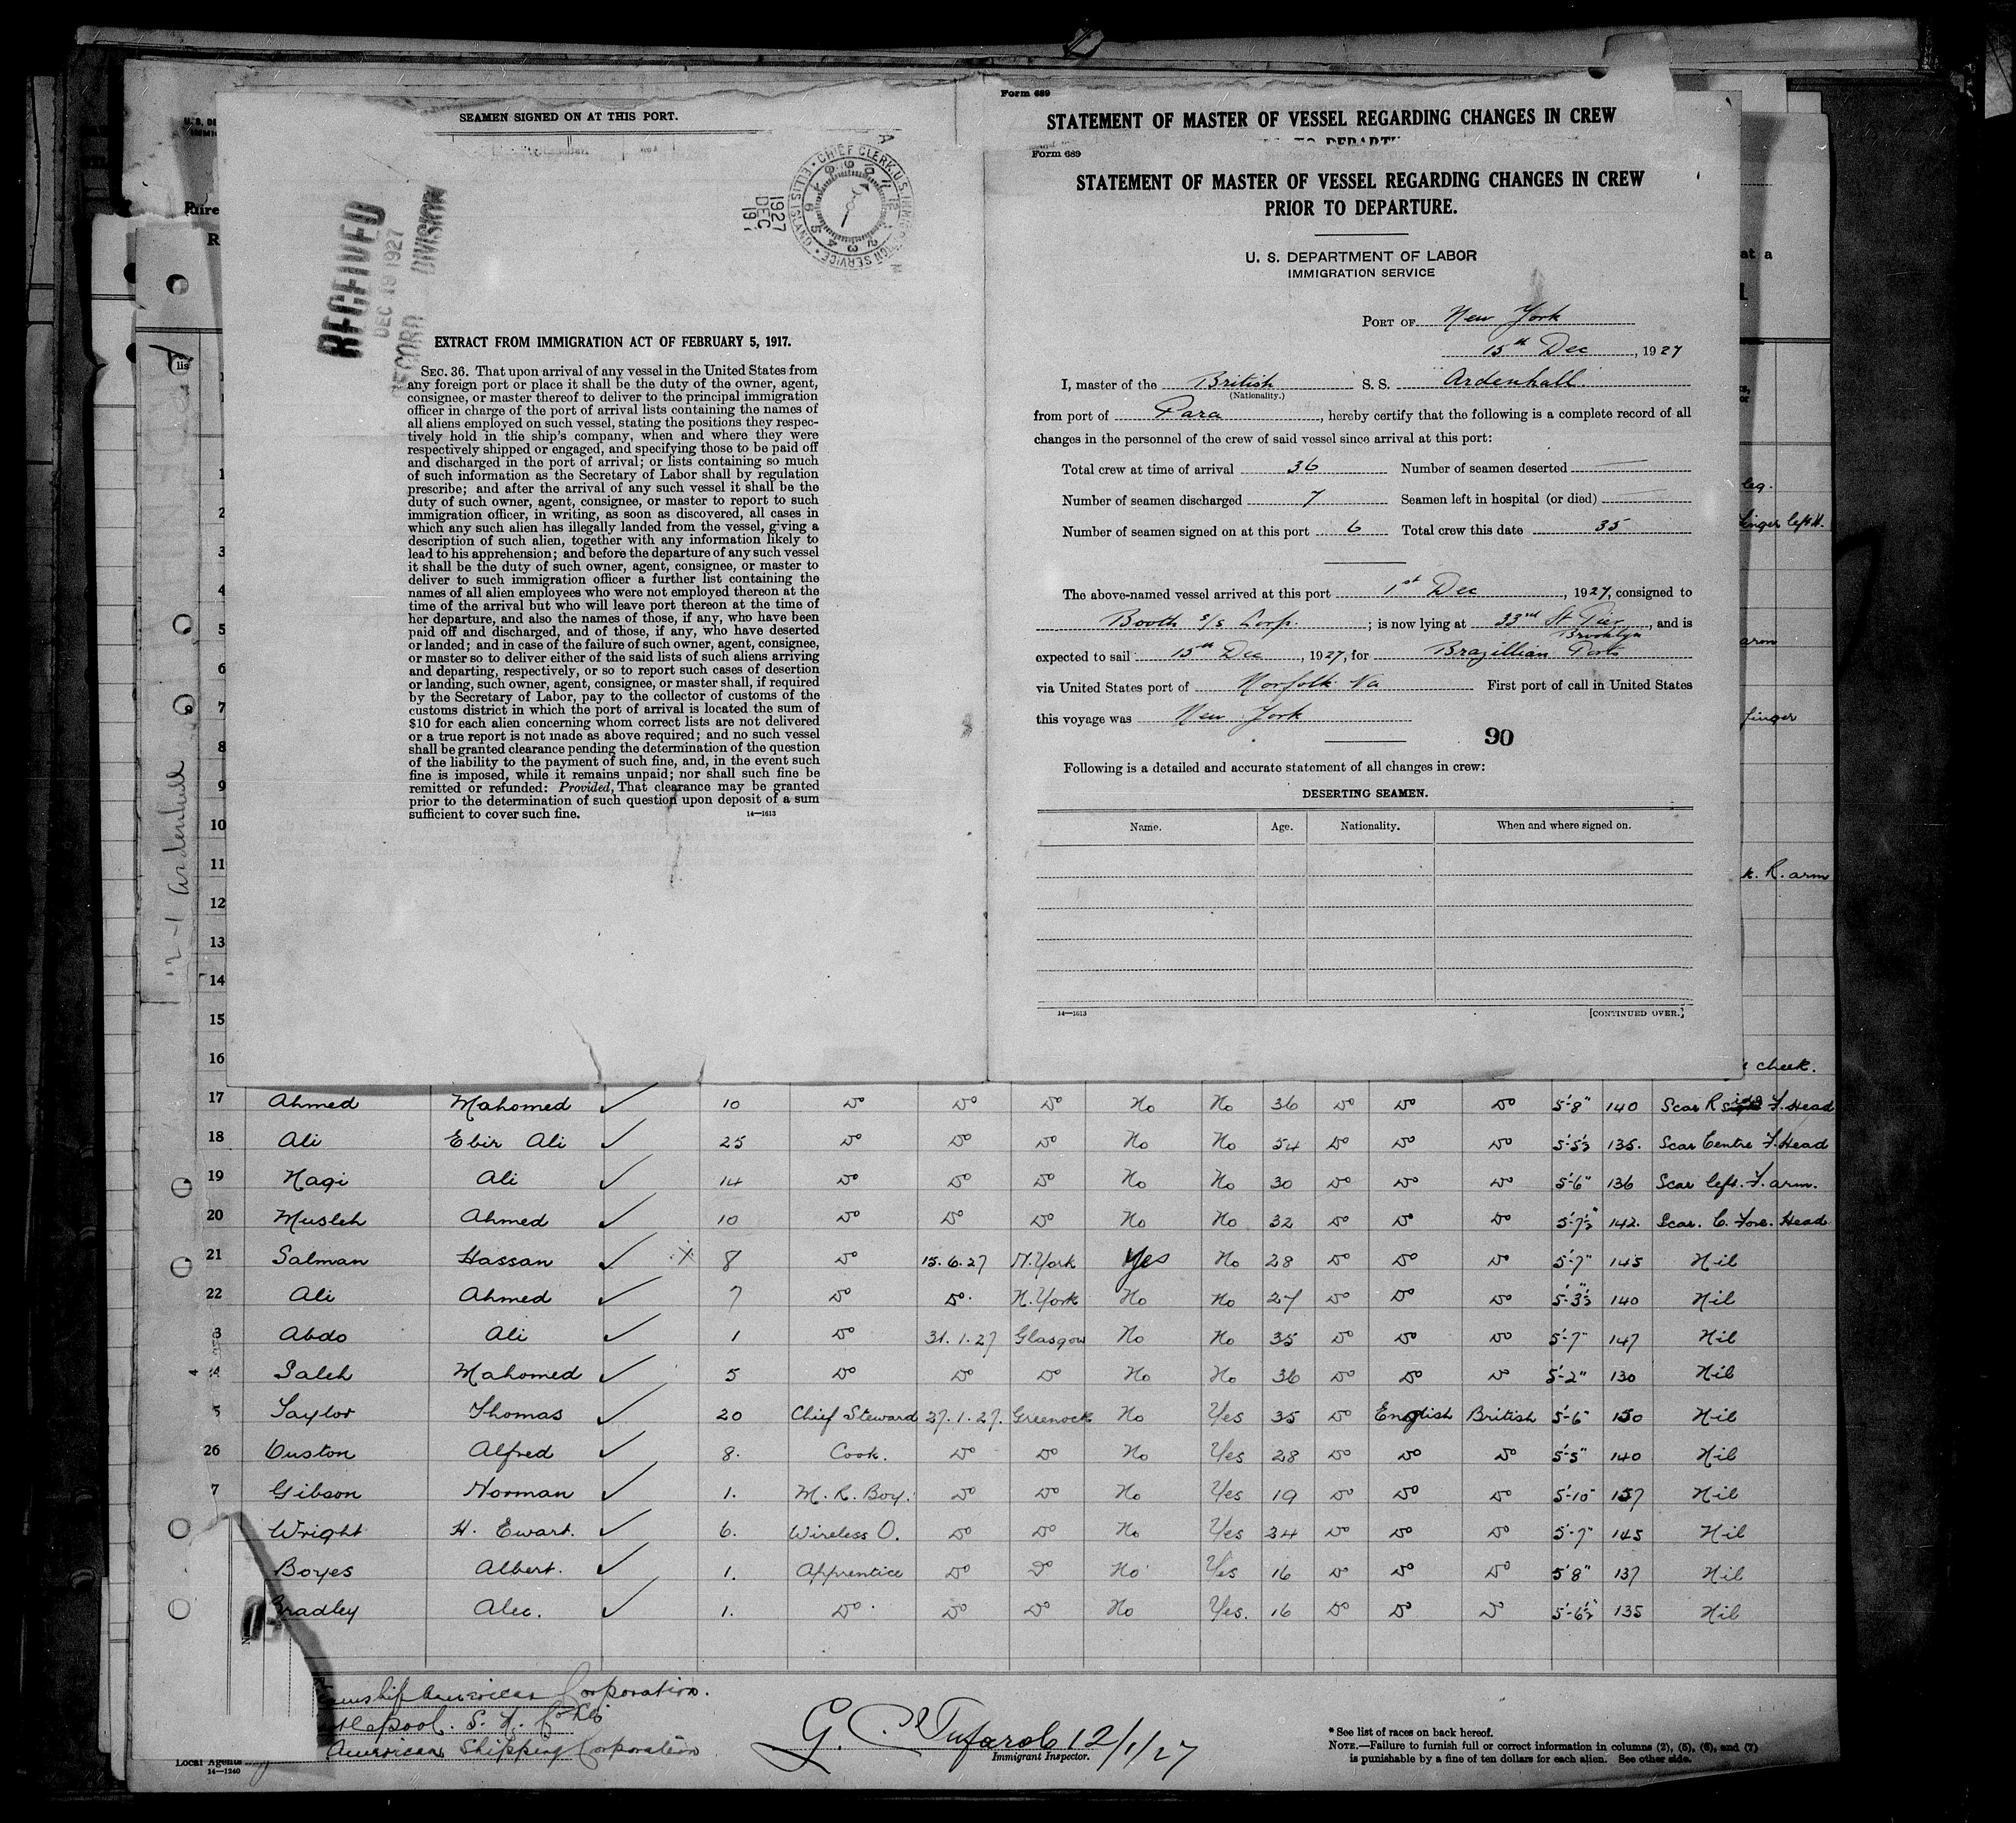 SEAMEN SIGNED ON AT THIS PORT.
RECEIVED
DEC 19 1927
RECORD DIVISION
CHIEF CLERK, U.S. IMMIGRATION SERVICE
ELLIS ISLAND
1927
DEC
19
EXTRACT FROM IMMIGRATION ACT OF FEBRUARY 5, 1917.
SEC. 36. That upon arrival of any vessel in the United States from
any foreign port or place it shall be the duty of the owner, agent,
consignee, or master thereof to deliver to the principal immigration
officer in charge of the port of arrival lists containing the names of
all aliens employed on such vessel, stating the positions they respec-
tively hold in the ship's company, when and where they were
respectively shipped or engaged, and specifying those to be paid off
and discharged in the port of arrival; or lists containing so much
of such information as the Secretary of Labor shall by regulation
prescribe; and after the arrival of any such vessel it shall be the
duty of such owner, agent, consignee, or master to report to such
immigration officer, in writing, as soon as discovered, all cases in
which any such alien has illegally landed from the vessel, giving a
description of such alien, together with any information likely to
lead to his apprehension; and before the departure of any such vessel
it shall be the duty of such owner, agent, consignee, or master to
deliver to such immigration officer a further list containing the
names of all alien employees who were not employed thereon at the
time of the arrival but who will leave port thereon at the time of
her departure, and also the names of those, if any, who have been
paid off and discharged, and of those, if any, who have deserted
or landed; and in case of the failure of such owner, agent, consignee,
or master so to deliver either of the said lists of such aliens arriving
and departing, respectively, or so to report such cases of desertion
or landing, such owner, agent, consignee, or master shall, if required
by the Secretary of Labor, pay to the collector of customs of the
customs district in which the port of arrival is located the sum of
$10 for each alien concerning whom correct lists are not delivered
or a true report is not made as above required; and no such vessel
shall be granted clearance pending the determination of the question
of the liability to the payment of such fine, and, in the event such
fine is imposed, while it remains unpaid; nor shall such fine be
remitted or refunded: Provided, That clearance may be granted
prior to the determination of such question upon deposit of a sum
sufficient to cover such fine.
14—1613
Form 689
STATEMENT OF MASTER OF VESSEL REGARDING CHANGES IN CREW
Form 689
STATEMENT OF MASTER OF VESSEL REGARDING CHANGES IN CREW
PRIOR TO DEPARTURE.
U. S. DEPARTMENT OF LABOR
IMMIGRATION SERVICE
PORT OF New York
15th Dec, 1927
I, master of the British S. S. Ardenhall.
(Nationality.)
from port of Para, hereby certify that the following is a complete record of all
changes in the personnel of the crew of said vessel since arrival at this port:
Total crew at time of arrival 36 Number of seamen deserted —
Number of seamen discharged 7 Seamen left in hospital (or died) —
Number of seamen signed on at this port 6 Total crew this date 35
The above-named vessel arrived at this port 1st Dec, 1927, consigned to
Booth S/S Corp.; is now lying at 33rd St Pier Brooklyn, and is
expected to sail 15th Dec, 1927, for Brazillian Ports
via United States port of Norfolk Va First port of call in United States
this voyage was New York
90
Following is a detailed and accurate statement of all changes in crew:
DESERTING SEAMEN.
Name. Age. Nationality. When and where signed on.
14—1613 [CONTINUED OVER.]
12-1 Ardenhall
at a
leg.
finger left H.
arm
finger
R. arm
cheek.
1
2
3
4
5
6
7
8
9
10
11
12
13
14
15
16
17 Ahmed Mahomed ✓ 10 Do Do Do No No 36 Do Do Do 5'-8" 140 Scar R side F. Head
18 Ali Ebir Ali ✓ 25 Do Do Do No No 54 Do Do Do 5'-5½ 135. Scar Centre F. Head
19 Nagi Ali ✓ 14 Do Do Do No No 30 Do Do Do 5'-6" 136 Scar left. F. arm.
20 Musleh Ahmed ✓ 10 Do Do Do No No 32 Do Do Do 5'-7½" 142. Scar. C. Fore. Head
21 Salman Hassan ✓ X 8 Do 15.6.27 N. York Yes No 28 Do Do Do 5'-7" 145 Nil
22 Ali Ahmed ✓ 7 Do Do. N. York No No 27 Do Do Do 5'-3½" 140 Nil
3 Abdo Ali ✓ 1 Do 31.1.27 Glasgow No No 35 Do Do Do 5'-7" 147 Nil
4 Saleh Mahomed ✓ 5 Do Do Do No No 36 Do Do Do 5'-2" 130 Nil
5 Taylor Thomas ✓ 20 Chief Steward 27.1.27. Greenock No Yes 35 Do English British 5'-6" 150 Nil
26 Ouston Alfred ✓ 8. Cook. Do Do No Yes 28 Do Do Do 5'-5" 140 Nil
7 Gibson Norman ✓ 1. M. R. Boy. Do Do No Yes 19 Do Do Do 5'-10" 157 Nil
Wright H. Ewart. ✓ 6. Wireless O. Do Do No Yes 24 Do Do Do 5'-7" 145 Nil
Boyes Albert. ✓ 1. Apprentice Do Do No Yes 16 Do Do Do 5'8" 137 Nil
Bradley Alec. ✓ 1. Do Do Do No Yes. 16 Do Do Do 5'-6½" 135 Nil
American Corporation.
American Shipping Corporation
Local Agents
14—1240
12/1/27
Immigrant Inspector.
* See list of races on back hereof.
NOTE.—Failure to furnish full or correct information in columns (2), (5), (6), and (7)
is punishable by a fine of ten dollars for each alien. See other side.